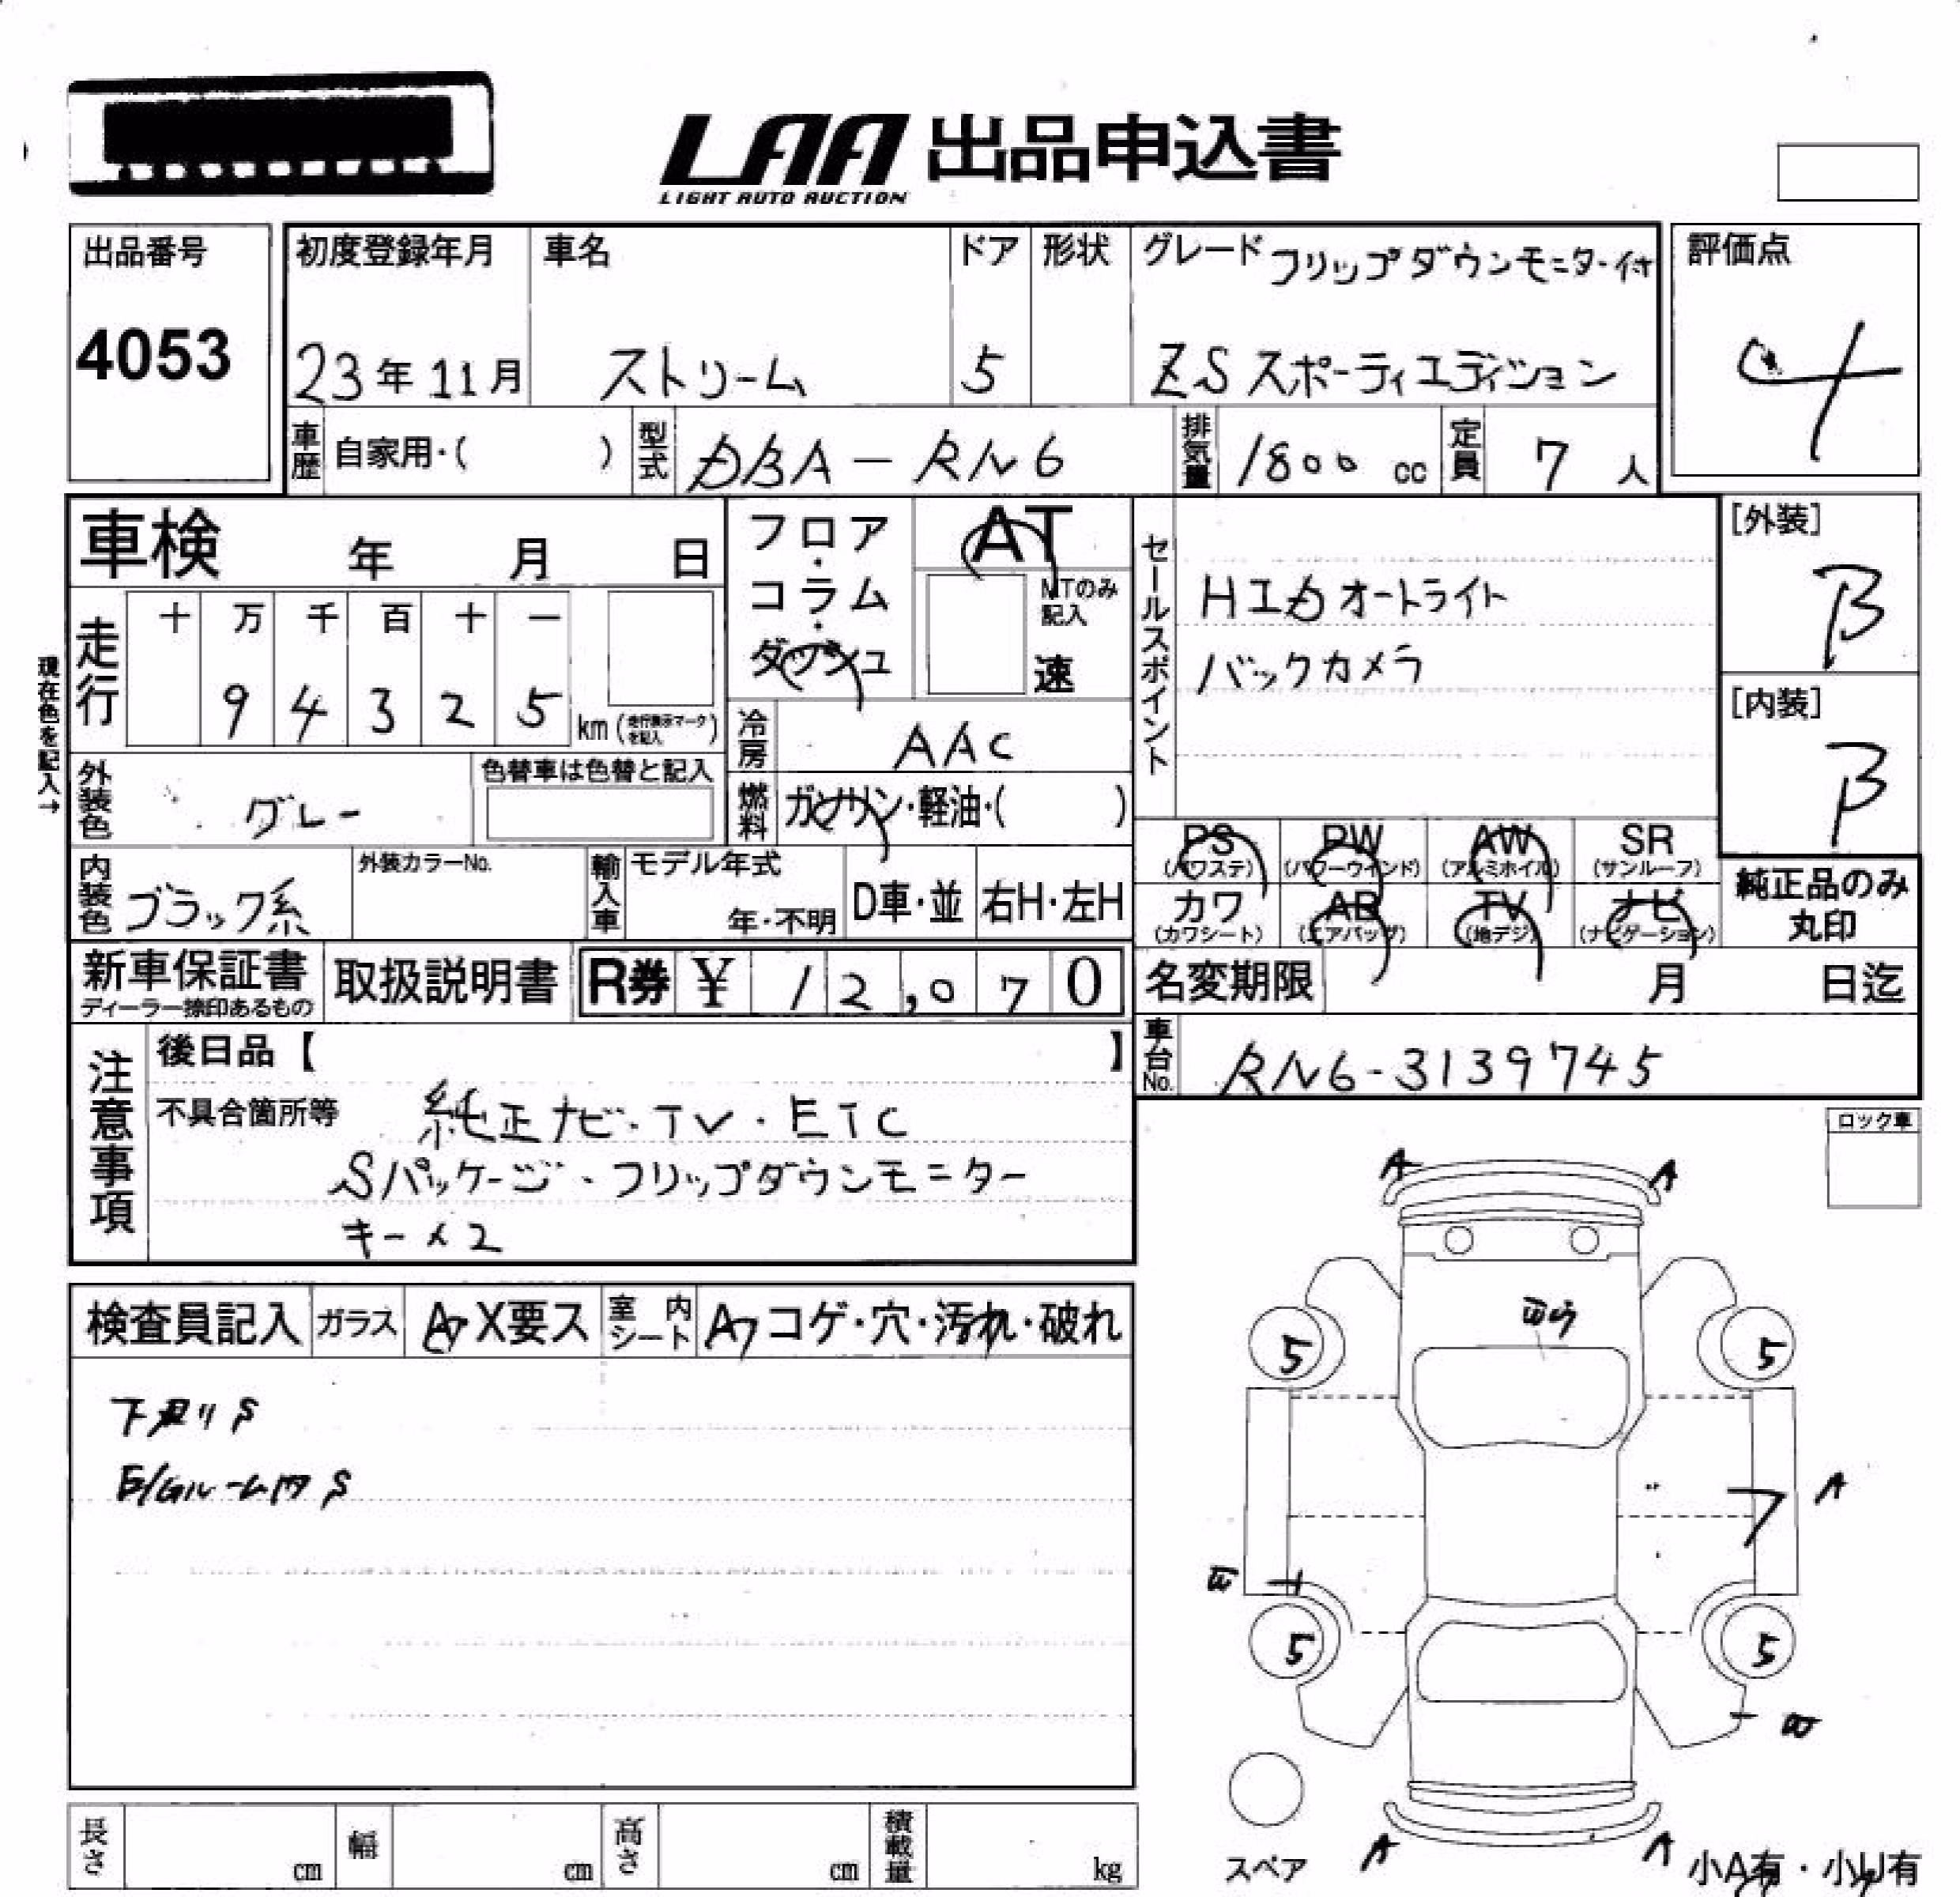 LAA 出品申込書
LIGHT AUTO AUCTION
出品番号
4053
初度登録年月
23年11月
車名
ストリーム
ドア
5
形状
グレード フリップダウンモニター付
ZS スポーティエディション
評価点
4
車歴 自家用・( )
型式 DBA-RN6
排気量 1800 cc
定員 7 人
車検 年 月 日
フロア・コラム・ダッシュ
AT
MTのみ記入
速
セールスポイント
HIDオートライト
バックカメラ
[外装]
B
[内装]
B
現在色を記入→
走行
十 万 千 百 十 一
9 4 3 2 5 km (走行表示マークを記入)
冷房 AAC
外装色 グレー
色替車は色替と記入
燃料 ガソリン・軽油・( )
内装色 ブラック系
外装カラーNo.
輸入車
モデル年式
年・不明
D車・並
右H・左H
PS (パワステ)
PW (パワーウインド)
AW (アルミホイル)
SR (サンルーフ)
カワ (カワシート)
AB (エアバッグ)
TV (地デジ)
ナビ (ナビゲーション)
純正品のみ
丸印
新車保証書
ディーラー捺印あるもの
取扱説明書
R券 ¥ 12,070
名変期限 月 日迄
車台No. RN6-3139745
注意事項
後日品【 】
不具合箇所等 純正ナビ・TV・ETC
Sパッケージ・フリップダウンモニター
キー×2
ロック車
検査員記入
ガラス
A X要ス
室内シート
A コゲ・穴・汚れ・破れ
下廻りS
E/Gルーム内S
A A
5 5
A
5 5
A A
スペア
小A有・小U有
長さ cm
幅 cm
高さ cm
積載量 kg